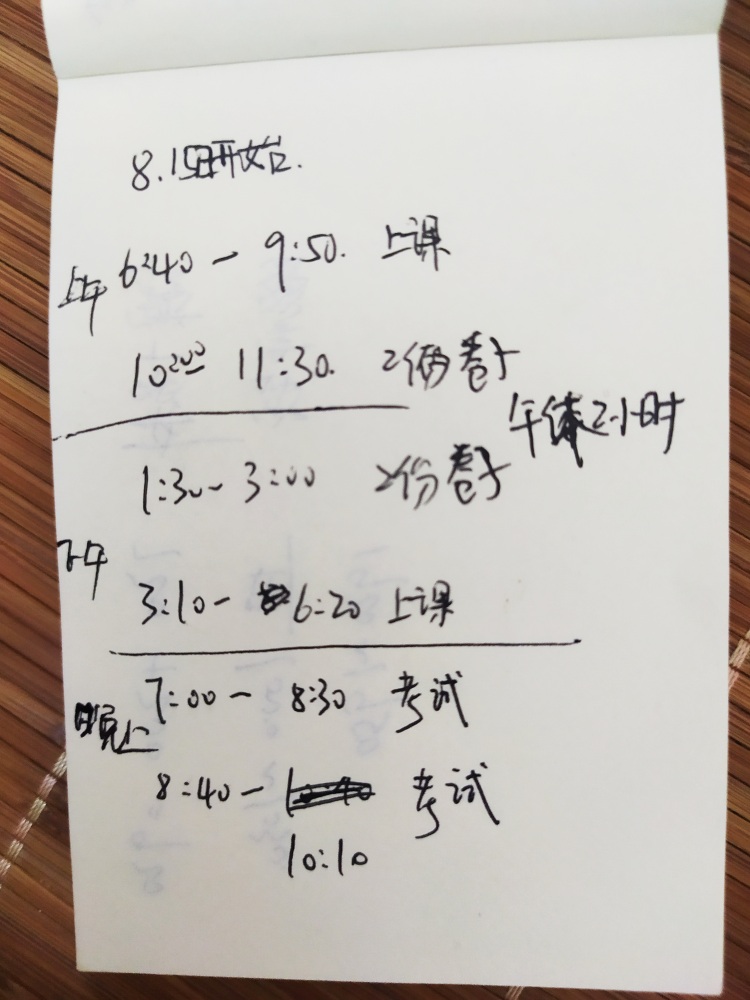 8.15日开始.
上午 6:40 - 9:50. 上课
10:00 - 11:30. 2份卷子
午休2小时
1:30 - 3:00 2份卷子
下午
3:10 - 6:20 上课
7:00 - 8:30 考试
晚上
8:40 - 考试
10:10